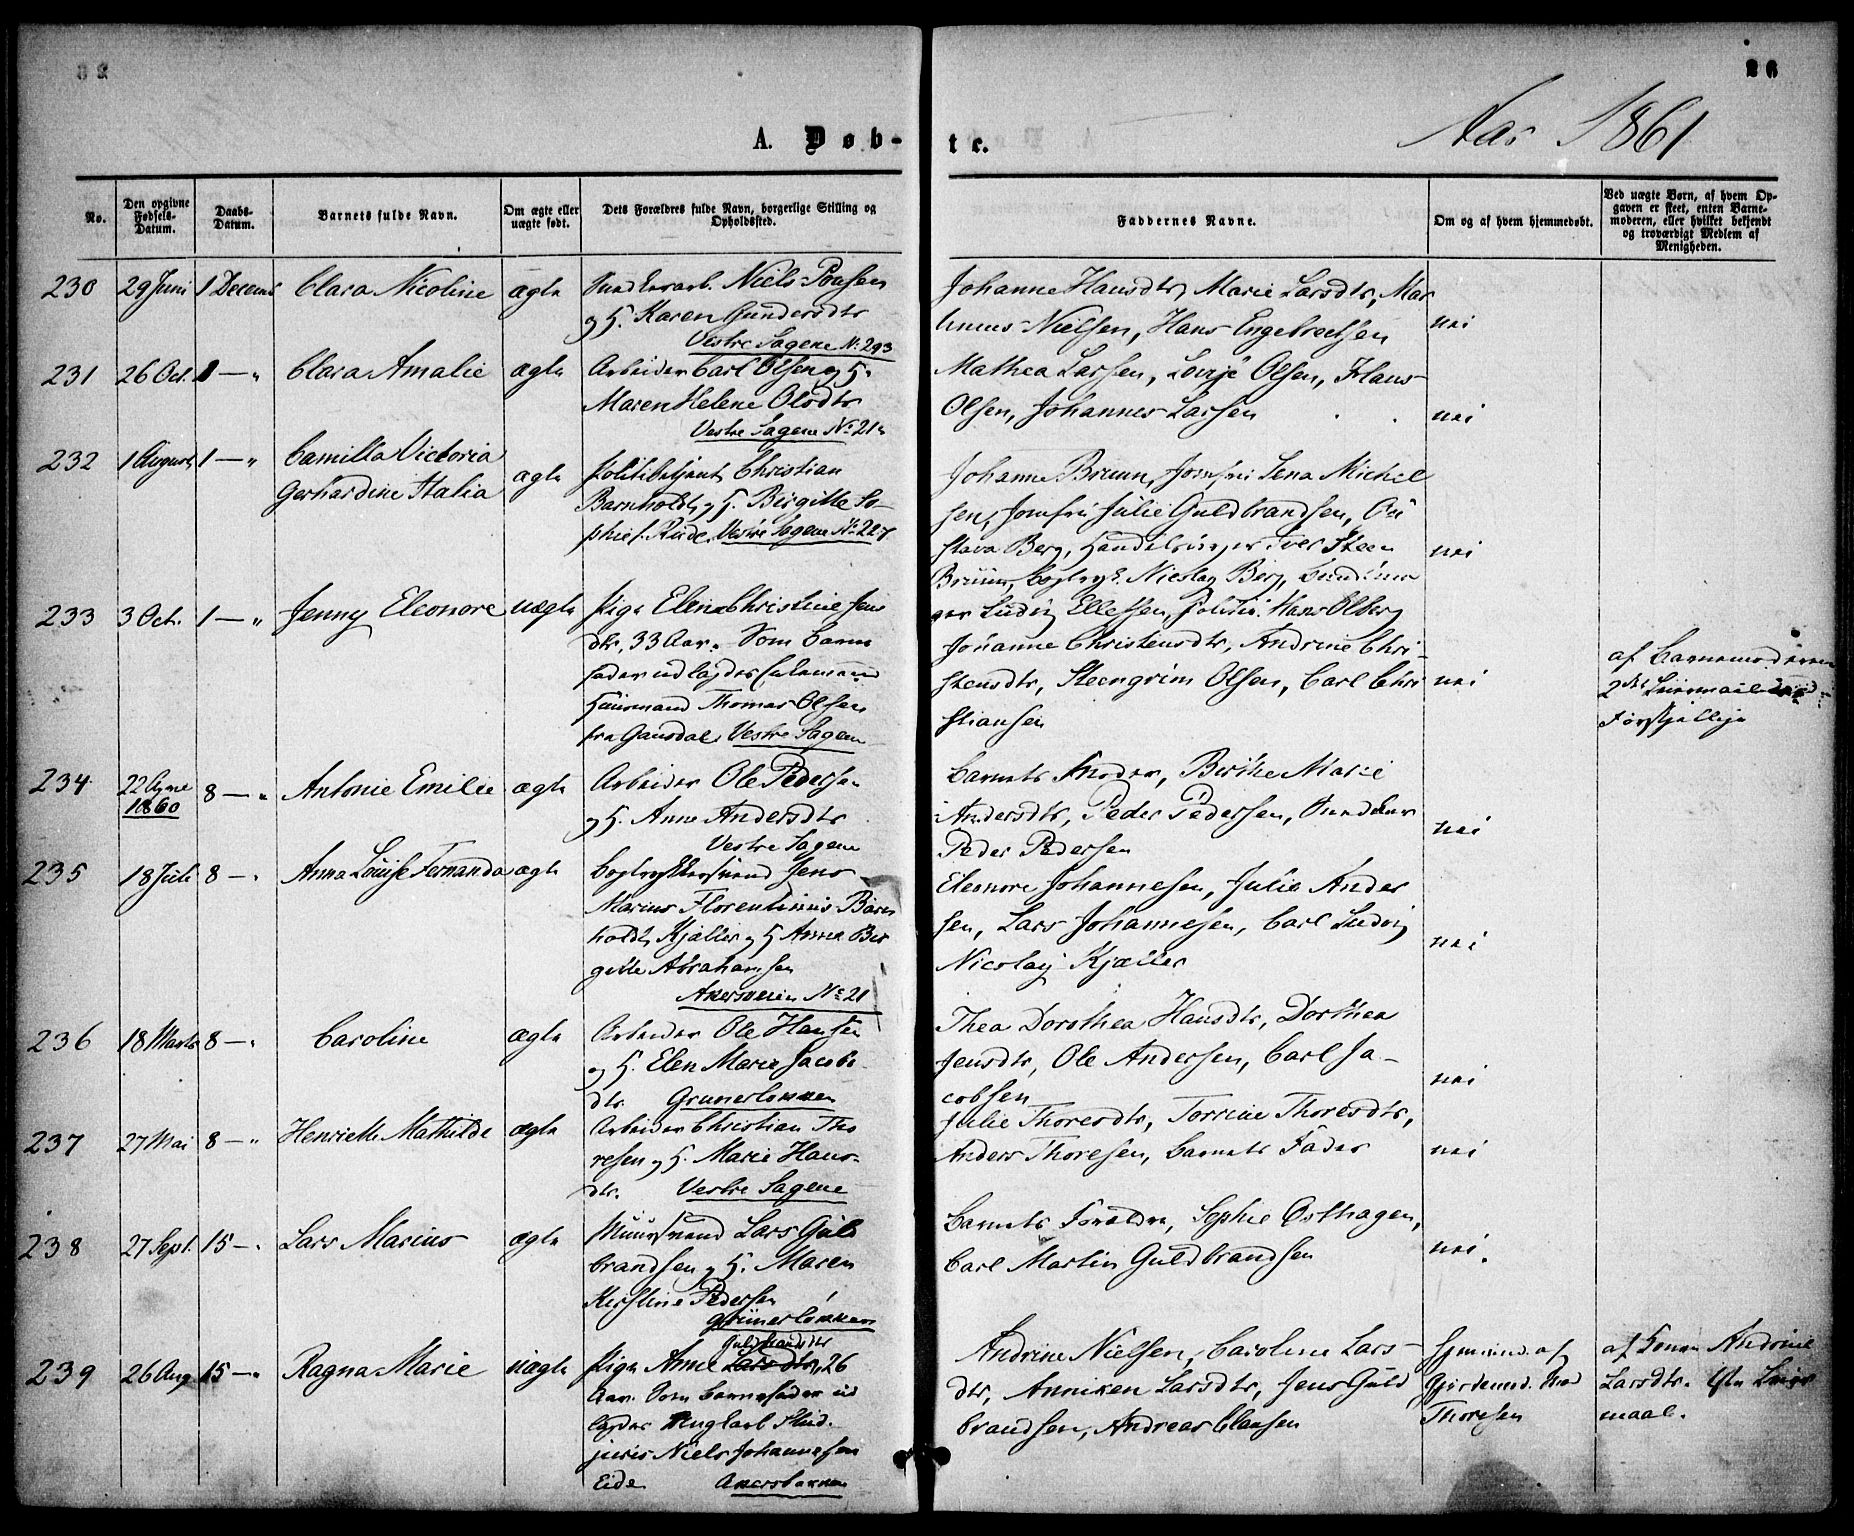 26
Aar 1861
A. Døb-
te.
No.
Den opgivne Fødsels-Datum.
Daabs-Datum.
Barnets fulde Navn.
Om ægte eller uægte født.
Dets Forældres fulde Navn, borgerlige Stilling og Opholdssted.
Faddernes Navne.
Om og af hvem hjemmedøbt.
Ved uægte Børn, af hvem Opgaven er skeet, enten Barnemoderen, eller hvilket bekjendt og troværdigt Medlem af Menigheden.
230 29 Juni 1 Decemb Clara Nicoline ægte
Niels Poulsen
og H. Karen Gundersdtr
Vestre Sagene No 293
Johanne Hansdtr, Marie Larsdtr, Mar
Nielsen, Hans Engebretsen
nei
231 26 Oct. 1 — " Clara Amalie ægte
Arbeider Carl Olsen og H.
Maren Helene Olsdtr
Vestre Sagene No 21
Mathea Larsen, Lovise Olsen, Hans
Olsen, Johannes Larsen
nei
232 1 August 1 — " Camilla Victoria
Gerhardine Thalia ægte
Politibetjent Christian
Barnholdt og H. Birgitte So-
phie f. Rude. Vestre Sagene No 227
Johanne Bruun, Jomfru Lena Michel
sen, Jomfru Julie Guldbrandsen, Gu
stava Berg, Iver Steen
Bruun, Nicolay Berg,
Ludvig Ellefsen, Hans Olberg
nei
233 3 Oct. 1 — " Jenny Eleonore uægte
Pige Elen Christine Jens
dtr, 33 Aar. Som Barne
fader udlagdes
Huusmand Thomas Olsen
fra Gausdal. Vestre Sagene
Johanne Christensdtr, Andrine Chri-
stensdtr, Steengrim Olsen, Carl Chri
stiansen
nei
af Barnemoderen
234 22 1860 8 — " Antonie Emilie ægte
Arbeider Ole Pedersen
og H. Anne Andersdtr
Vestre Sagene
Barnets Moder, Berthe Marie
Andersdtr, Peder Pedersen,
Peder Pedersen
nei
235 18 Juli 8 — " Anna Louise Fernanda ægte
Bogtrykkersvend Jens
Marius Florentinus Barn
holdt Kjøller og H. Anna Bir
gitte Abrahamsen
Akersveien No 21
Eleonore Johannesen, Julie Ander
sen, Lars Johannesen, Carl Ludvig
Nicolay Kjøller
nei
236 18 Marts 8 — " Caroline ægte
Arbeider Ole Hansen
og H. Elen Marie Jacobs
dtr. Grunerløkken
Thea Dorothea Hansdtr, Dorthea
Jensdtr, Ole Andersen, Carl Ja-
cobsen
nei
237 27 Mai 8 — " Henriette Mathilde ægte
Arbeider Christian Tho
resen og H. Marie Hans-
dtr. Vestre Sagene
Julie Thoresdtr, Torrine Thoresdtr,
Anders Thoresen, Barnets Fader
nei
238 27 Sept. 15 — " Lars Marius ægte
Muursvend Lars Gul
brandsen og H. Maren
Kirstine Pedersen
Grünerløkken
Barnets Forældre, Sophie Osthagen,
Carl Martin Guldbrandsen
nei.
239 26 Aug 15 — " Ragna Marie uægte
Guldbrandsdtr
Pige Anne Larsdtr, 26
Aar. Som Barnefader ud
lagdes Ungkarl Stud.
juris Niels Johannesen
Eide Akersbakken
Andrine Nielsen, Caroline Lars-
dtr, Anniken Larsdtr, Jens Guld
brandsen, Andreas Clausen
Hjemmed. af
Gjordemod.
Thoresen
af Andrine
Larsdtr. 1ste Leier
maal.